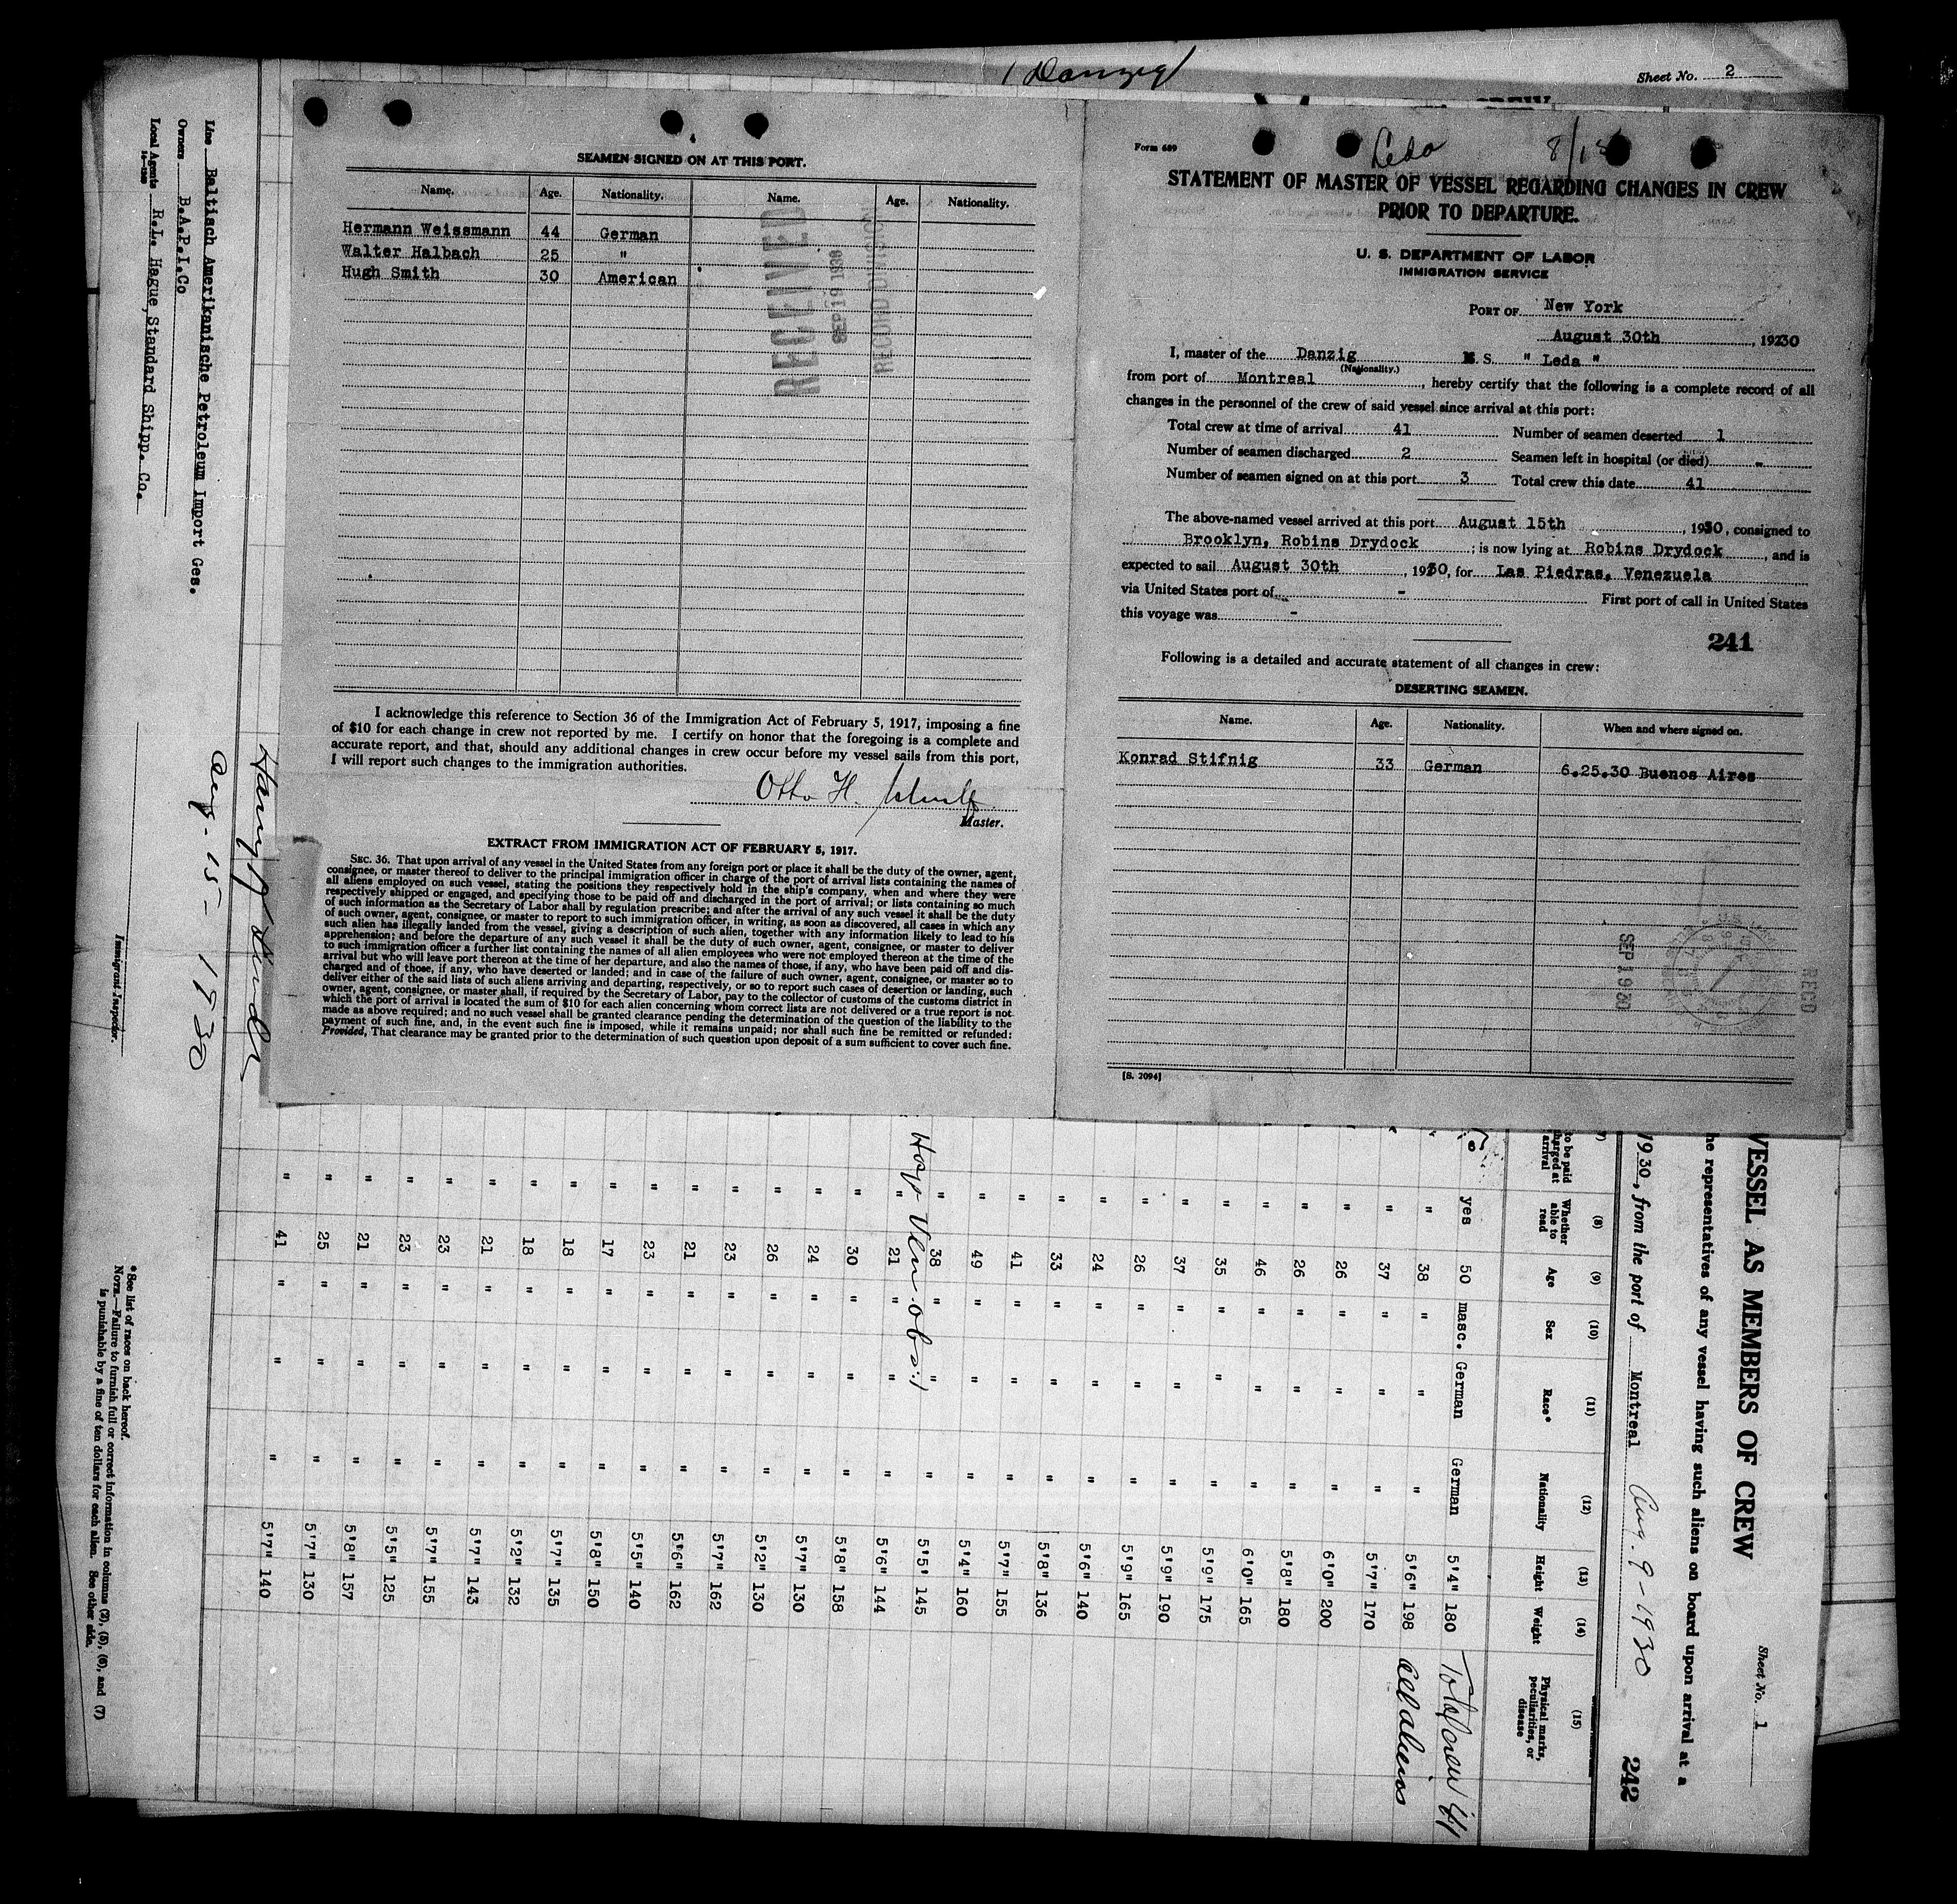 Danzig
Sheet No. 2
SEAMEN SIGNED ON AT THIS PORT.
Name. Age. Nationality. Name. Age. Nationality.
Hermann Weissmann 44 German
Walter Halbach 25 "
Hugh Smith 30 American
RECEIVED
SEP 19 1930
RECORD DIVISION
I acknowledge this reference to Section 36 of the Immigration Act of February 5, 1917, imposing a fine
of $10 for each change in crew not reported by me. I certify on honor that the foregoing is a complete and
accurate report, and that, should any additional changes in crew occur before my vessel sails from this port,
I will report such changes to the immigration authorities.
Otto H.
Master.
EXTRACT FROM IMMIGRATION ACT OF FEBRUARY 5, 1917.
SEC. 36. That upon arrival of any vessel in the United States from any foreign port or place it shall be the duty of the owner, agent,
consignee, or master thereof to deliver to the principal immigration officer in charge of the port of arrival lists containing the names of
all aliens employed on such vessel, stating the positions they respectively hold in the ship's company, when and where they were
respectively shipped or engaged, and specifying those to be paid off and discharged in the port of arrival; or lists containing so much
of such information as the Secretary of Labor shall by regulation prescribe; and after the arrival of any such vessel it shall be the duty
of such owner, agent, consignee, or master to report to such immigration officer, in writing, as soon as discovered, all cases in which any
such alien has illegally landed from the vessel, giving a description of such alien, together with any information likely to lead to his
apprehension; and before the departure of any such vessel it shall be the duty of such owner, agent, consignee, or master to deliver
to such immigration officer a further list containing the names of all alien employees who were not employed thereon at the time of the
arrival but who will leave port thereon at the time of her departure, and also the names of those, if any, who have been paid off and dis-
charged and of those, if any, who have deserted or landed; and in case of the failure of such owner, agent, consignee, or master so to
deliver either of the said lists of such aliens arriving and departing, respectively, or so to report such cases of desertion or landing, such
owner, agent, consignee, or master shall, if required by the Secretary of Labor, pay to the collector of customs of the customs district in
which the port of arrival is located the sum of $10 for each alien concerning whom correct lists are not delivered or a true report is not
made as above required; and no such vessel shall be granted clearance pending the determination of the question of the liability to the
payment of such fine, and, in the event such fine is imposed, while it remains unpaid; nor shall such fine be remitted or refunded:
Provided, That clearance may be granted prior to the determination of such question upon deposit of a sum sufficient to cover such fine.
Form 689
Leda
STATEMENT OF MASTER OF VESSEL REGARDING CHANGES IN CREW
PRIOR TO DEPARTURE.
U. S. DEPARTMENT OF LABOR
IMMIGRATION SERVICE
PORT OF New York
August 30th, 19230
I, master of the Danzig S. S. " Leda "
(Nationality.)
from port of Montreal, hereby certify that the following is a complete record of all
changes in the personnel of the crew of said vessel since arrival at this port:
Total crew at time of arrival 41 Number of seamen deserted 1
Number of seamen discharged 2 Seamen left in hospital (or died) -
Number of seamen signed on at this port 3 Total crew this date 41
The above-named vessel arrived at this port August 15th, 1930, consigned to
Brooklyn, Robins Drydock; is now lying at Robins Drydock, and is
expected to sail August 30th, 1930, for Las Piedras, Venezuela
via United States port of - First port of call in United States
this voyage was -
241
Following is a detailed and accurate statement of all changes in crew:
DESERTING SEAMEN.
Name. Age. Nationality. When and where signed on.
Konrad Stifnig 33 German 6.25.30 Buenos Aires
SEP 1930
RECD
[S. 2094]
VESSEL AS MEMBERS OF CREW
Sheet No. 1
he representatives of any vessel having such aliens on board upon arrival at a
1930, from the port of Montreal Aug. 9 - 1930
242
to be paid
charged at
arrival
(8) Whether able to read
(9) Age
(10) Sex
(11) Race*
(12) Nationality
(13) Height
(14) Weight
(15) Physical marks, peculiarities, or disease
yes 50 masc. German German 5'4" 180 Total crew 41
" 38 " " " 5'6" 198 All aliens
" 37 " " " 5'7" 170
" 26 " " " 6'0" 200
" 26 " " " 5'8" 180
" 46 " " " 6'0" 165
" 35 " " " 5'9" 175
" 37 " " " 5'9" 190
" 26 " " " 5'9" 165
" 24 " " " 5'6" 140
" 33 " " " 5'8" 136
" 41 " " " 5'7" 155
" 49 " " " 5'4" 160
" 38 " " " 5'5' 145
" 21 " " " 5'6" 144
" 30 " " " 5'8" 158
" 24 " " " 5'7" 130
" 26 " " " 5'2" 130
" 23 " " " 5'7" 162
" 21 " " " 5'6" 162
" 23 " " " 5'5" 140
" 17 " " " 5'8" 150
" 18 " " " 5'7" 135
" 18 " " " 5'2" 132
" 21 " " " 5'7" 143
" 23 " " " 5'7" 155
" 23 " " " 5'5" 125
" 21 " " " 5'8" 157
" 25 " " " 5'7" 130
" 41 " " " 5'7" 140
Aug. 15 - 1930
Line Baltisch Amerikanische Petroleum Import Ges.
Owners B.A.P.I.Co
Local Agents R.L. Hague, Standard Shipp. Co.
Immigrant Inspector.
* See list of races on back hereof.
NOTE.—Failure to furnish full or correct information in columns (2), (5), (6), and (7)
is punishable by a fine of ten dollars for each alien. See other side.